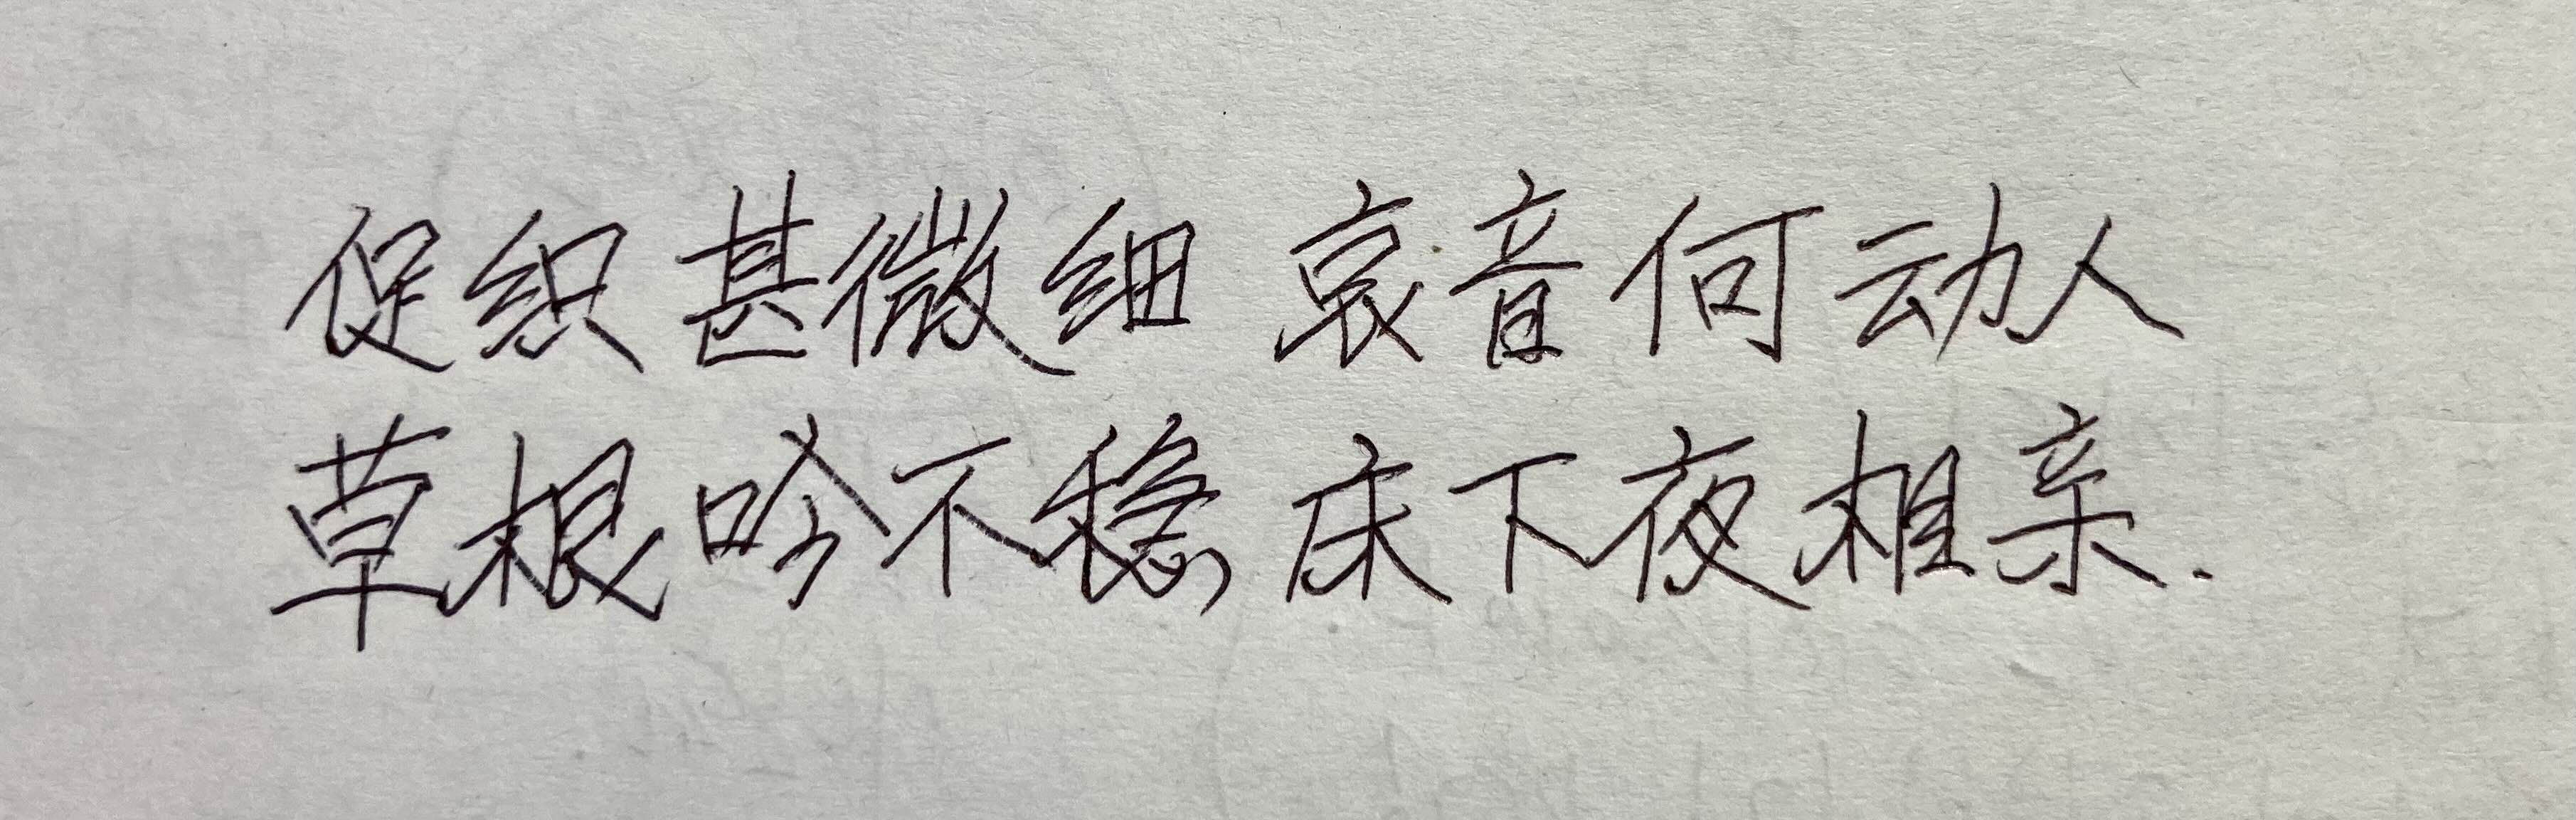 促织甚微细 哀音何动人
草根吟不稳 床下夜相亲.